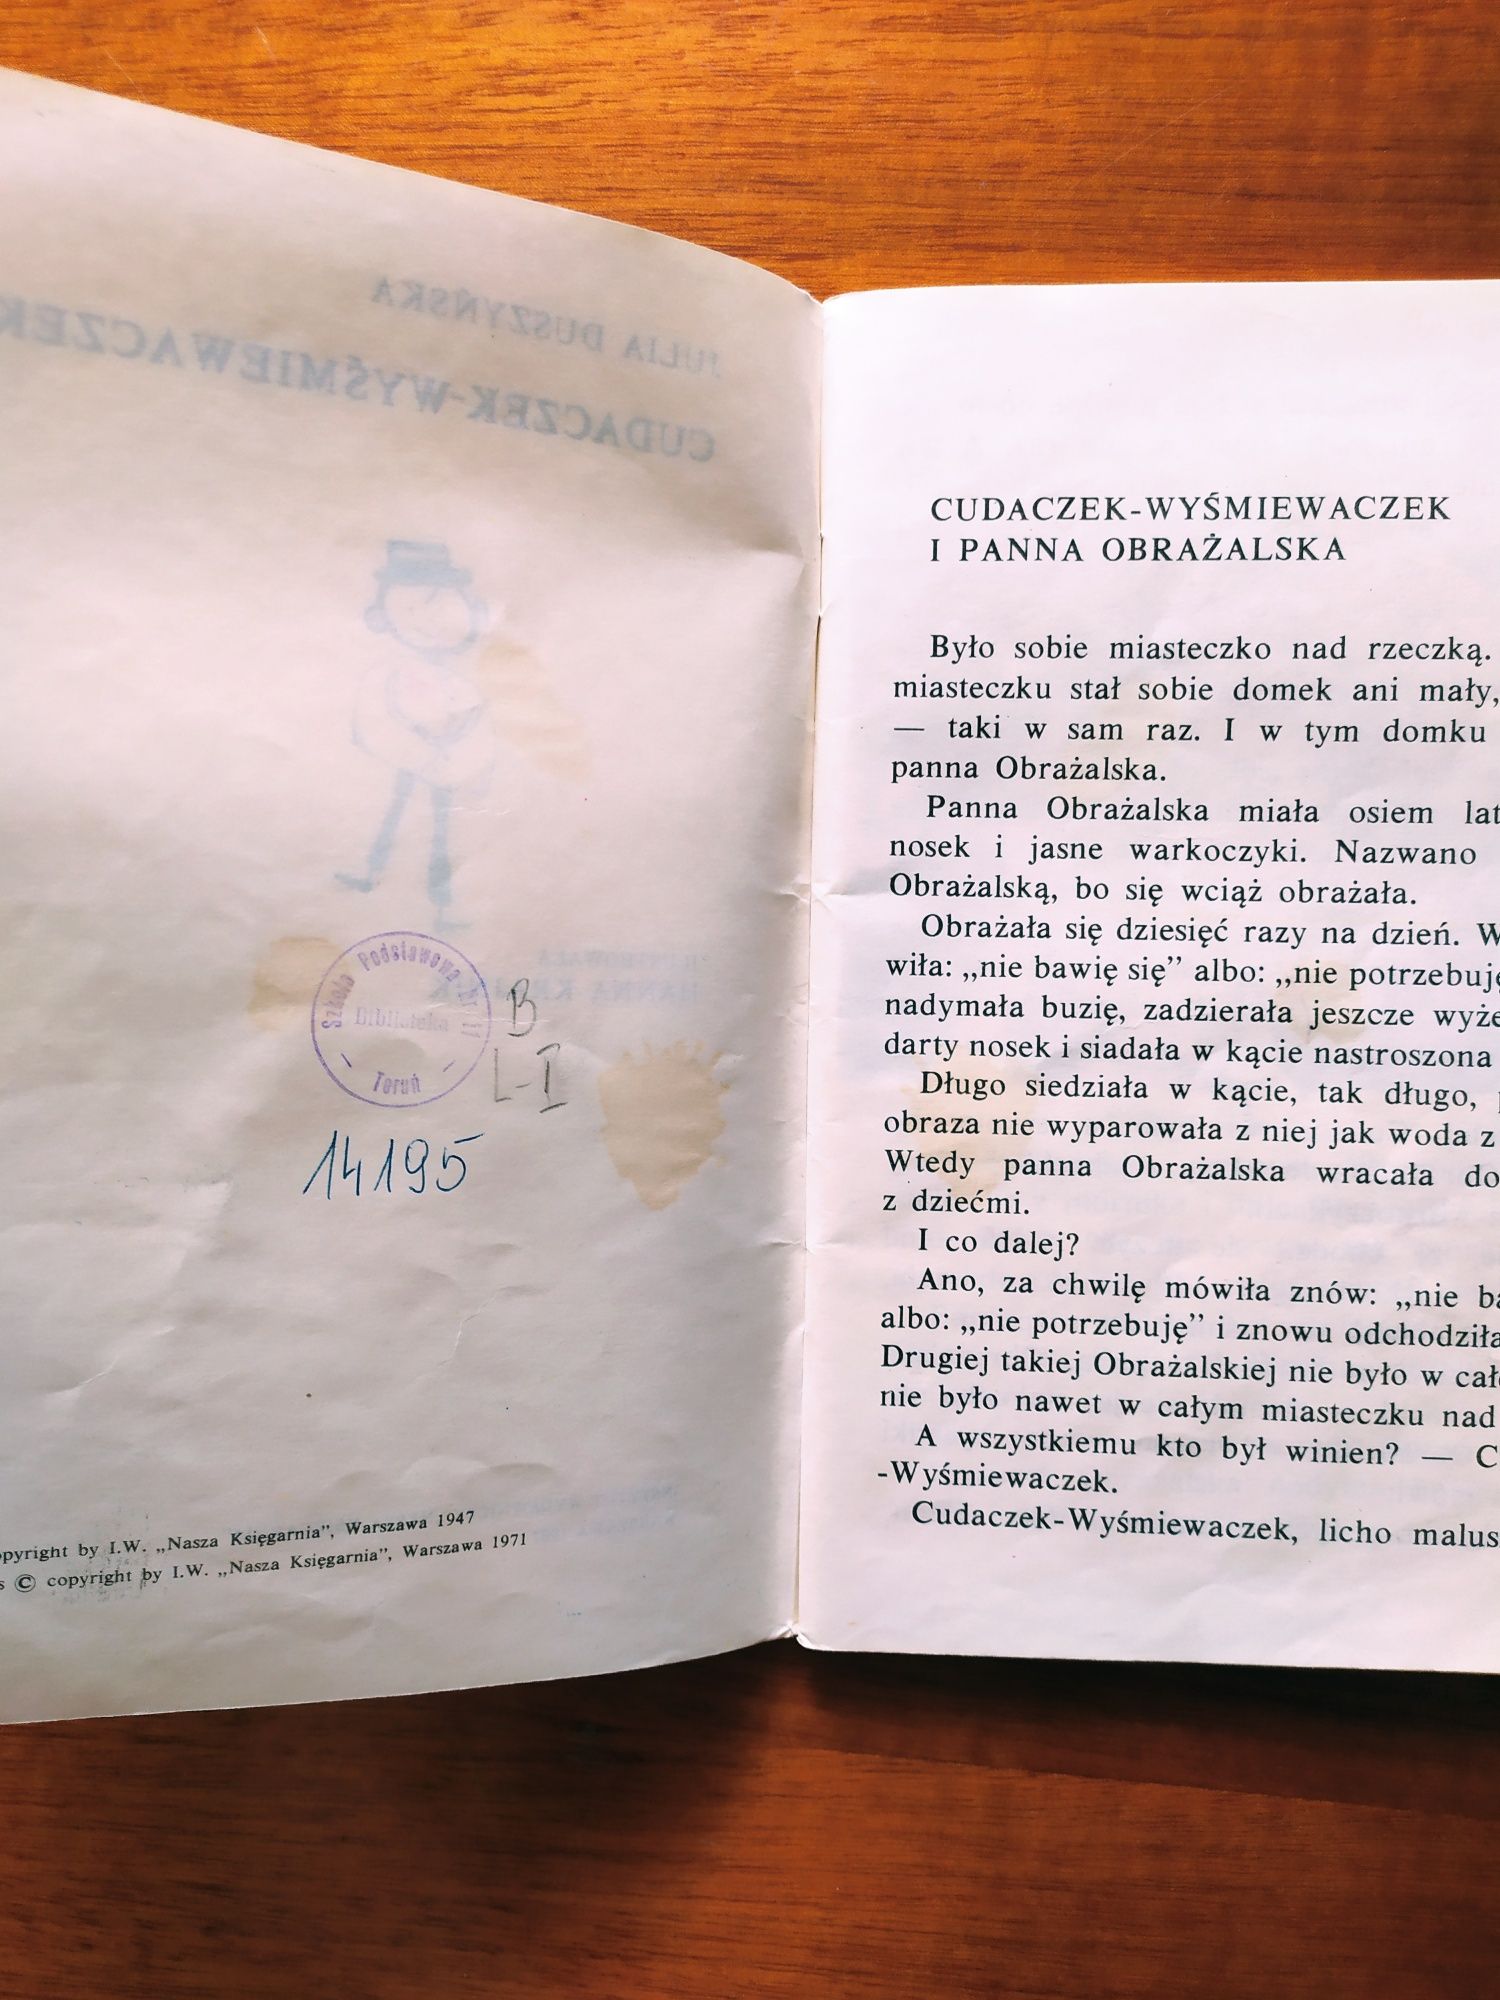 JULIA DUSZYŃSKA
CUDACZEK-WYŚMIEWACZEK
ILUSTROWAŁA
HANNA
Szkoła Podstawowa
Biblioteka
Toruń
B
L-I
14195
copyright by I.W. „Nasza Księgarnia”, Warszawa 1947
© copyright by I.W. „Nasza Księgarnia”, Warszawa 1971
CUDACZEK-WYŚMIEWACZEK
I PANNA OBRAŻALSKA
Było sobie miasteczko nad rzeczką.
miasteczku stał sobie domek ani mały,
— taki w sam raz. I w tym domku
panna Obrażalska.
Panna Obrażalska miała osiem lat
nosek i jasne warkoczyki. Nazwano
Obrażalską, bo się wciąż obrażała.
Obrażała się dziesięć razy na dzień. W
wiła: „nie bawię się” albo: „nie potrzebuję
nadymała buzię, zadzierała jeszcze wyże
darty nosek i siadała w kącie nastroszona
Długo siedziała w kącie, tak długo,
obraza nie wyparowała z niej jak woda z
Wtedy panna Obrażalska wracała do
z dziećmi.
I co dalej?
Ano, za chwilę mówiła znów: „nie ba
albo: „nie potrzebuję” i znowu odchodziła
Drugiej takiej Obrażalskiej nie było w cał
nie było nawet w całym miasteczku nad
A wszystkiemu kto był winien? — C
-Wyśmiewaczek.
Cudaczek-Wyśmiewaczek, licho malus